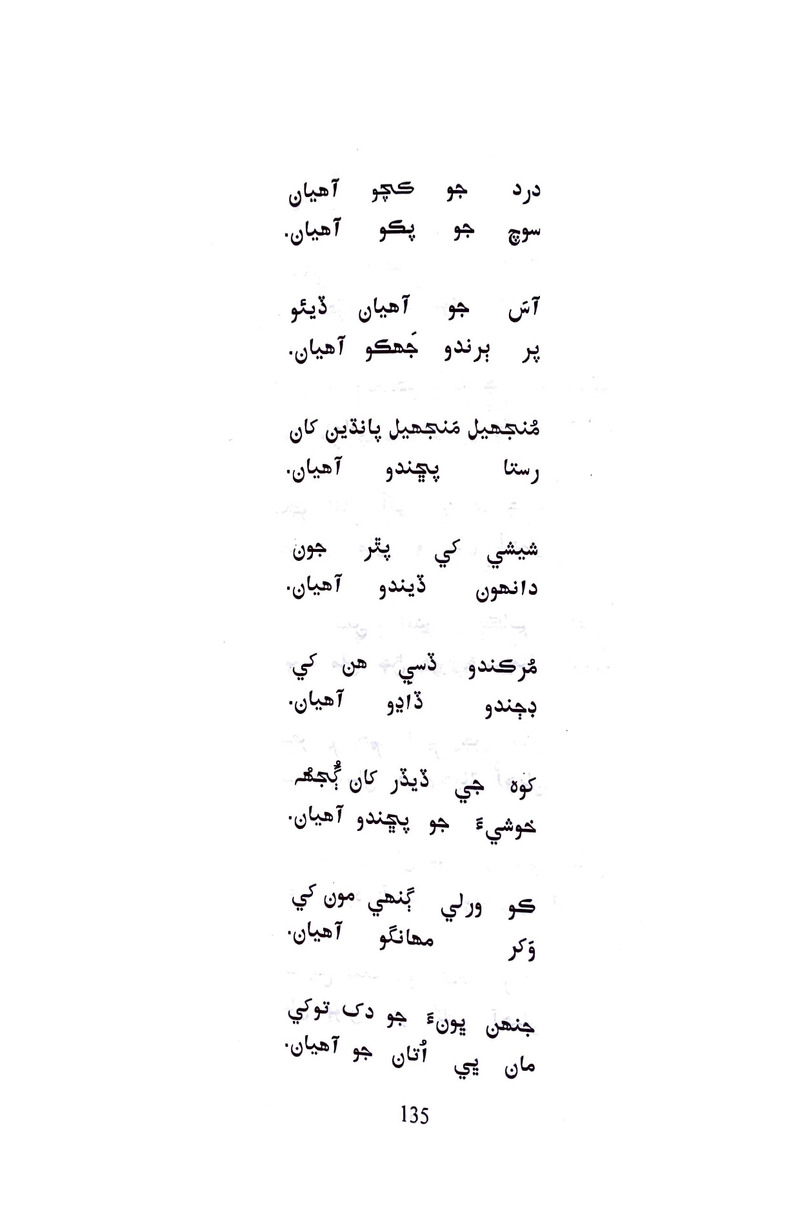 درد جو ڪچو آهيان
سوچ جو پڪو آهيان.
آسَ جو آهيان ڏيئو
پر ٻرندو جَهڪو آهيان.
مُنجهيل مَنجهيل پانڌين کان
رستا پڇندو آهيان.
شيشي کي پٿر جون
دانهون ڏيندو آهيان.
مُرڪندو ڏسي هن کي
ڊڄندو ڏاڍو آهيان.
کوهہ جي ڏيڏر کان ڳُجهُہ
خوشيءَ جو پڇندو آهيان.
ڪو ورلي ڳنهي مون کي
وَکر مهانگو آهيان.
جنهن ڀونءَ جو دک توکي
مان ڀي اُتان جو آهيان.
135